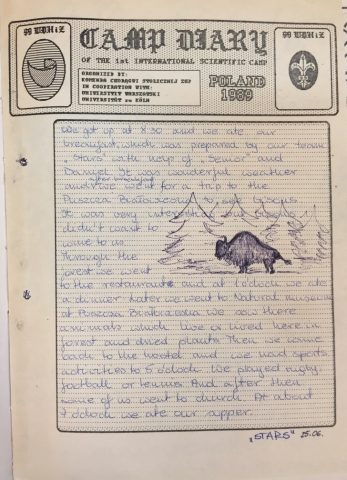 99 WDH i Z
CAMP DIARY
99 WDH i Z
OF THE 1st INTERNATIONAL SCIENTIFIC CAMP
ORGANIZED BY:
KOMENDA CHORĄGWI STOŁECZNEJ ZHP
IN COOPERATION WITH:
UNIWERSYTET WARSZAWSKI
UNIVERSITÄT zu KÖLN
POLAND
1989
We got up at 8.30 and we ate our
breakfast, which was prepared by our team
„Stars" with help of „Senior" and
Daniel. It was wonderful weather
after breakfast
and we went for a trip to the
Puszcza Białowieska to see bisons.
It was very interesting but bisons
didn't want to
come to us.
Through the
forest we went
to the restaurant and at 1 o'clock we ate
a dinner. Later we went to Natural museum
of Puszcza Białowieska. We saw there
animals which live or lived here in
forest and dried plants. Then we came
back to the hostel and we had sports
activities to 5 o'clock. We played rugby
football or tennis. And after then
some of us went to church. At about
7 o'clock we ate our supper.
„STARS" 25.06.